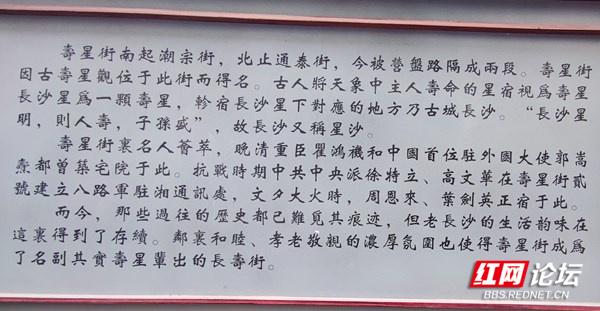 壽星街南起潮宗街，北止通泰街，今被營盤路隔成兩段。壽星街
因古壽星觀位于此街而得名。古人將天象中主人壽命的星宿視爲壽星
長沙星爲一顆壽星，軫宿長沙星下對應的地方乃古城長沙。“長沙星
明，則人壽，子孫盛”，故長沙又稱星沙。
壽星街裏名人薈萃，晚清重臣瞿鴻禨和中國首位駐外國大使郭嵩
燾都曾築宅院于此。抗戰時期中共中央派徐特立、高文華在壽星街貳
號建立八路軍駐湘通訊處，文夕大火時，周恩來、葉劍英正宿于此。
而今，那些過往的歷史都已難覓其痕迹，但老長沙的生活韵味在
這裏得到了存續。鄰裏和睦、孝老敬親的濃厚氛圍也使得壽星街成爲
了名副其實壽星輩出的長壽街。
红网论坛
BBS.REDNET.CN